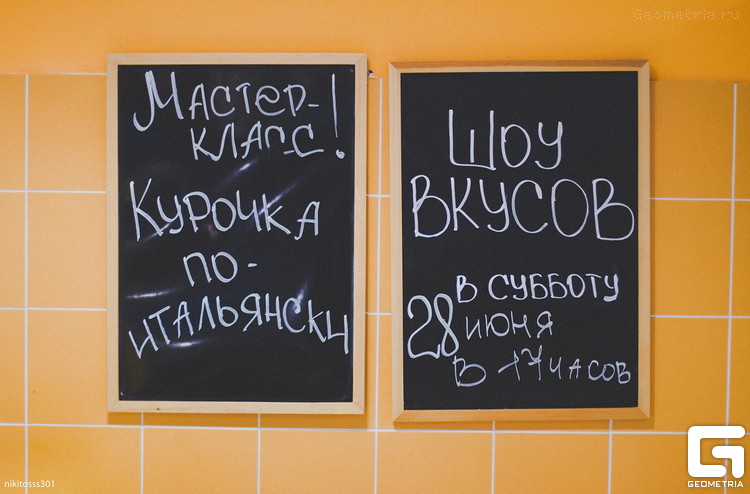 Geometria.ru
МАСТЕР-
КЛАСС!
КУРОЧКА
ПО-
ИТАЛЬЯНСКИ
ШОУ
ВКУСОВ
В СУББОТУ
28 ИЮНЯ
В 17 ЧАСОВ
nikitosss301
GEOMETRIA